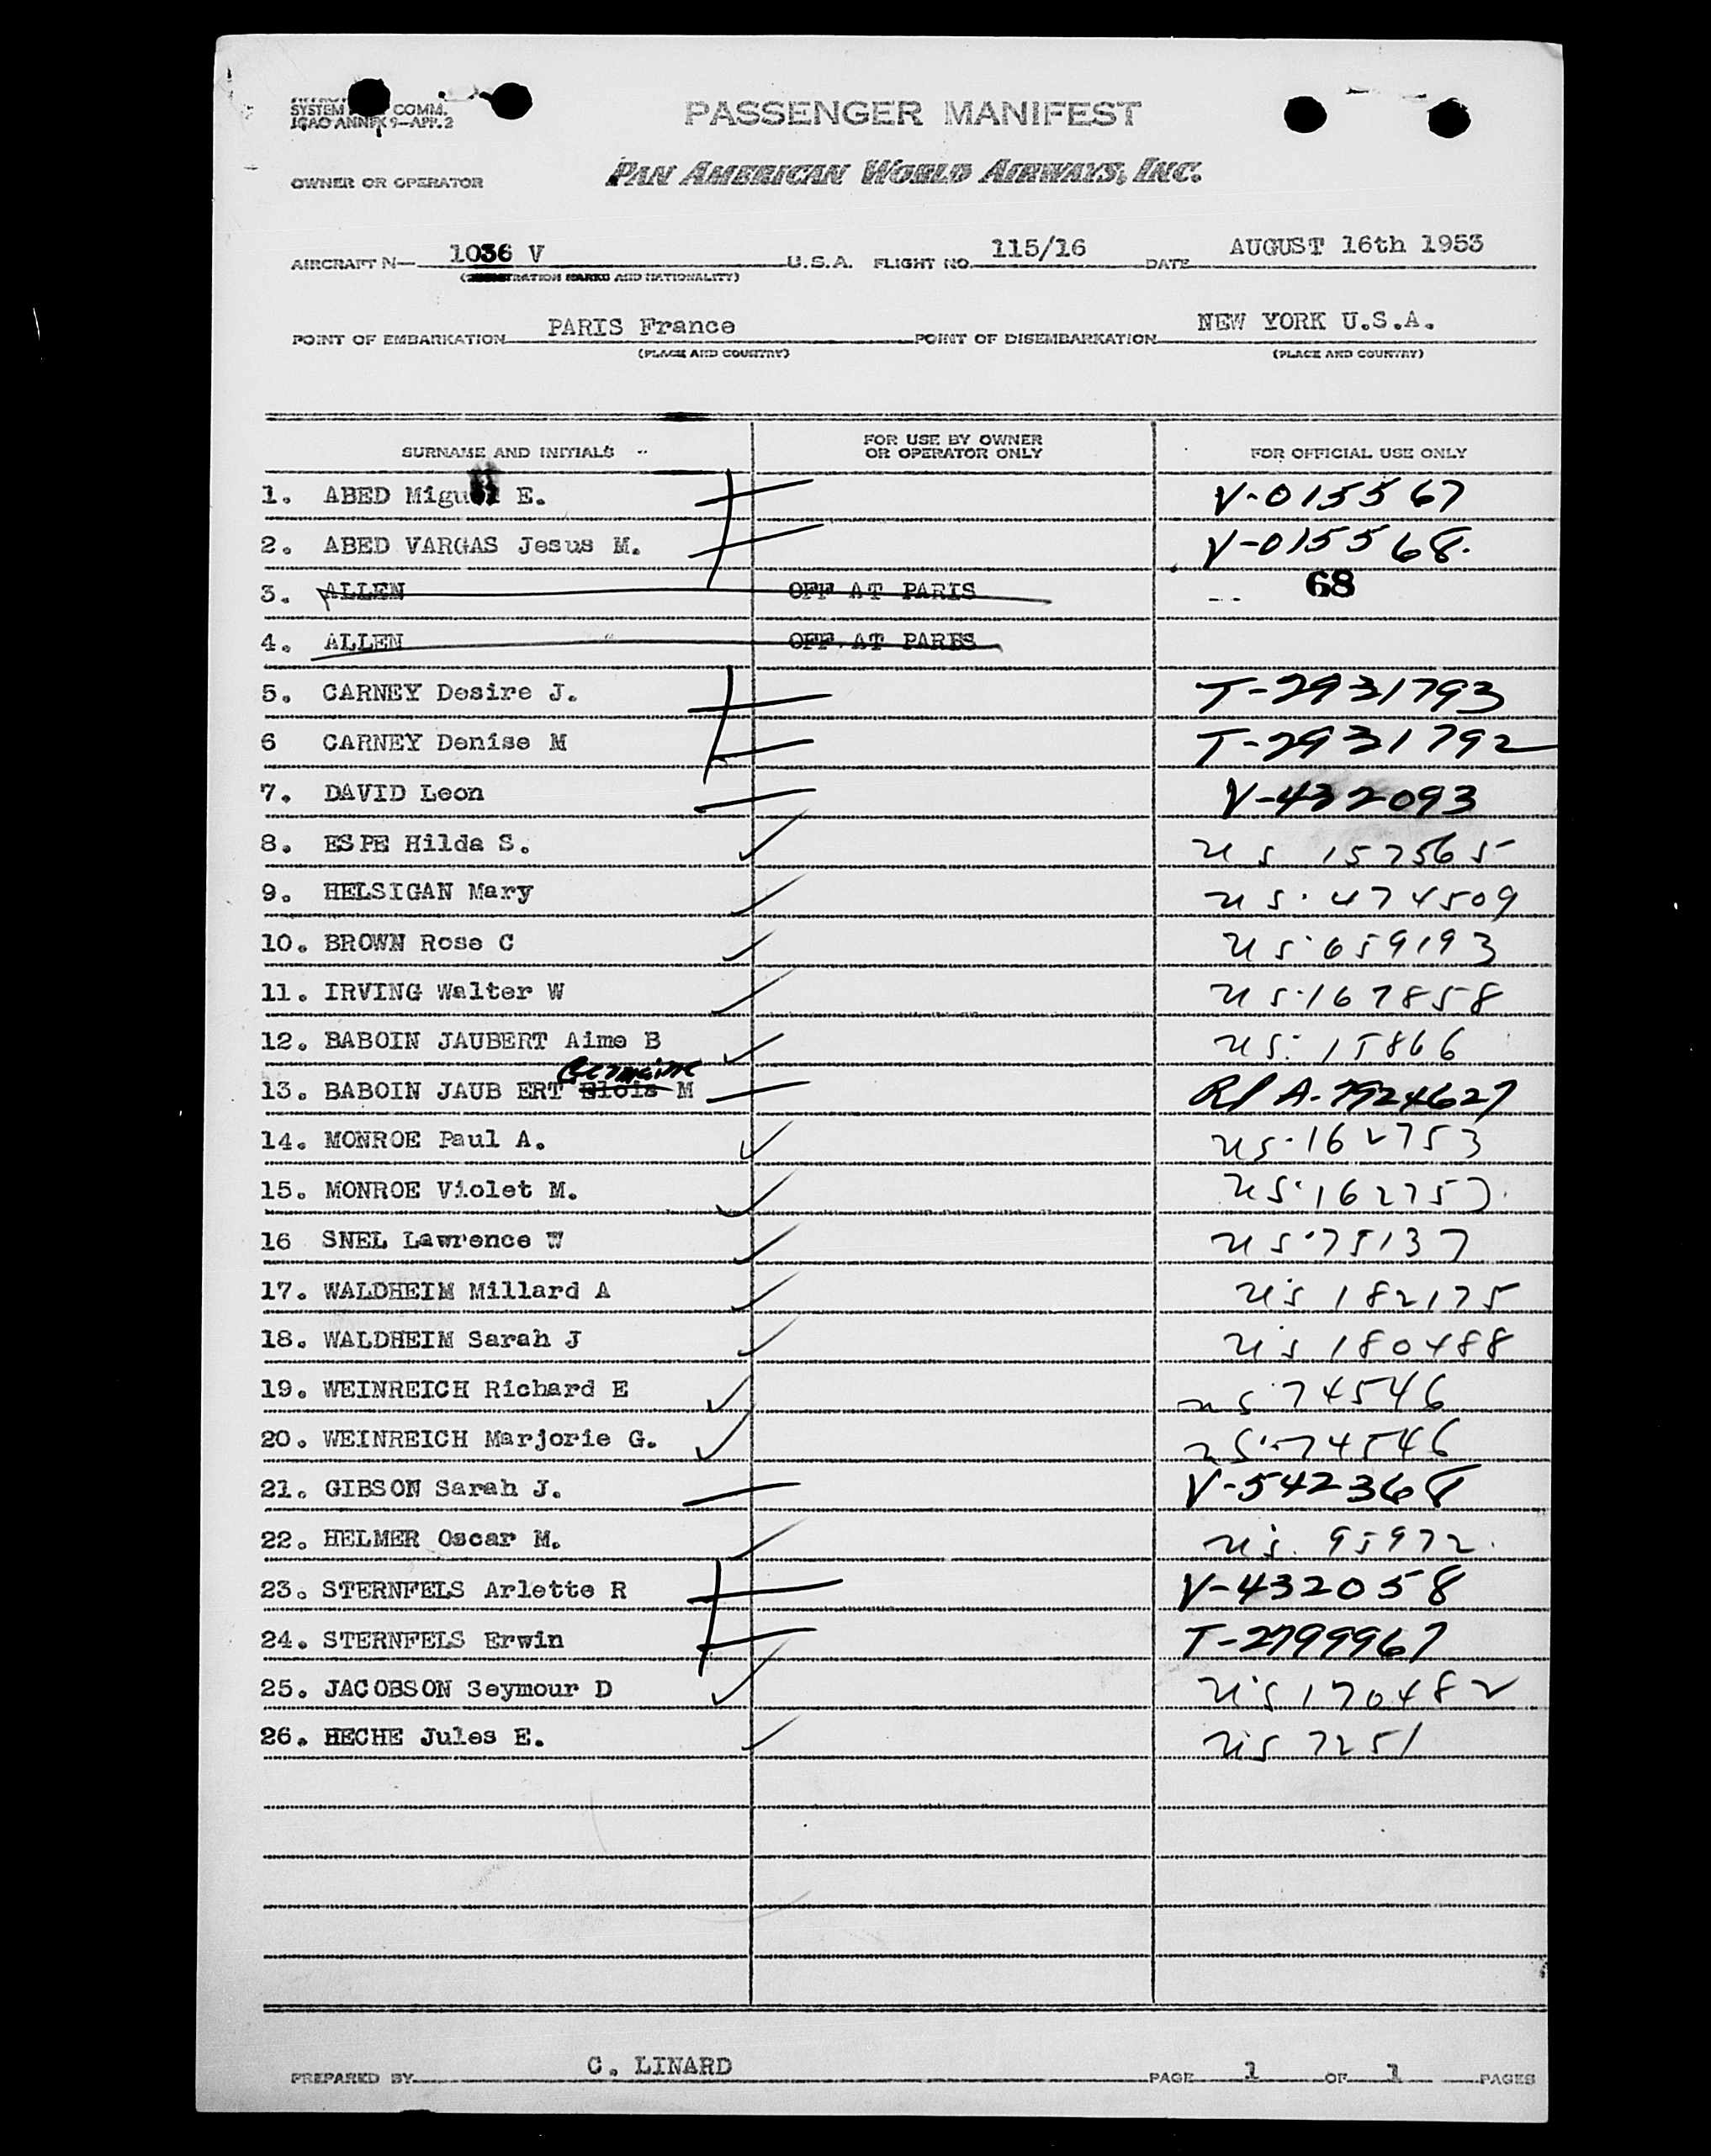 SYSTEM COMM.
ICAO ANNEX 9—APP. 2
PASSENGER MANIFEST
OWNER OR OPERATOR PAN AMERICAN WORLD AIRWAYS, INC.
AIRCRAFT N— 1036 V U.S.A. FLIGHT NO. 115/16 DATE AUGUST 16th 1953
(REGISTRATION MARKS AND NATIONALITY)
POINT OF EMBARKATION PARIS France POINT OF DISEMBARKATION NEW YORK U.S.A.
(PLACE AND COUNTRY) (PLACE AND COUNTRY)
SURNAME AND INITIALS FOR USE BY OWNER OR OPERATOR ONLY FOR OFFICIAL USE ONLY
1. ABED Miguel E. V-015567
2. ABED VARGAS Jesus M. V-015568.
3. ALLEN OFF AT PARIS 68
4. ALLEN OFF AT PARIS
5. CARNEY Desire J. T-2931793
6 CARNEY Denise M T-2931792
7. DAVID Leon V-432093
8. ESPE Hilda S. US 157565
9. HELSIGAN Mary US. 474509
10. BROWN Rose C US. 659193
11. IRVING Walter W US. 167858
12. BABOIN JAUBERT Aime B US. 15866
Germaine
13. BABOIN JAUB ERT Elois M R/ A-7924627
14. MONROE Paul A. US. 162753
15. MONROE Violet M. US. 162753.
16 SNEL Lawrence W US. 75137
17. WALDHEIM Millard A US 182175
18. WALDHEIM Sarah J US 180488
19. WEINREICH Richard E US 74546
20. WEINREICH Marjorie G. US. 74546
21. GIBSON Sarah J. V-542368
22. HELMER Oscar M. US. 95972.
23. STERNFELS Arlette R V-432058
24. STERNFELS Erwin T-2799967
25. JACOBSON Seymour D US 170482
26. HECHE Jules E. US 7251
PREPARED BY C. LINARD PAGE 1 OF 1 PAGES